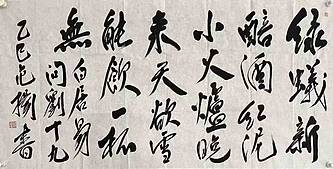 绿蚁新
醅酒红泥
小火炉晚
来天欲雪
能饮一杯
無白居易
问刘十九
乙巳范杨書